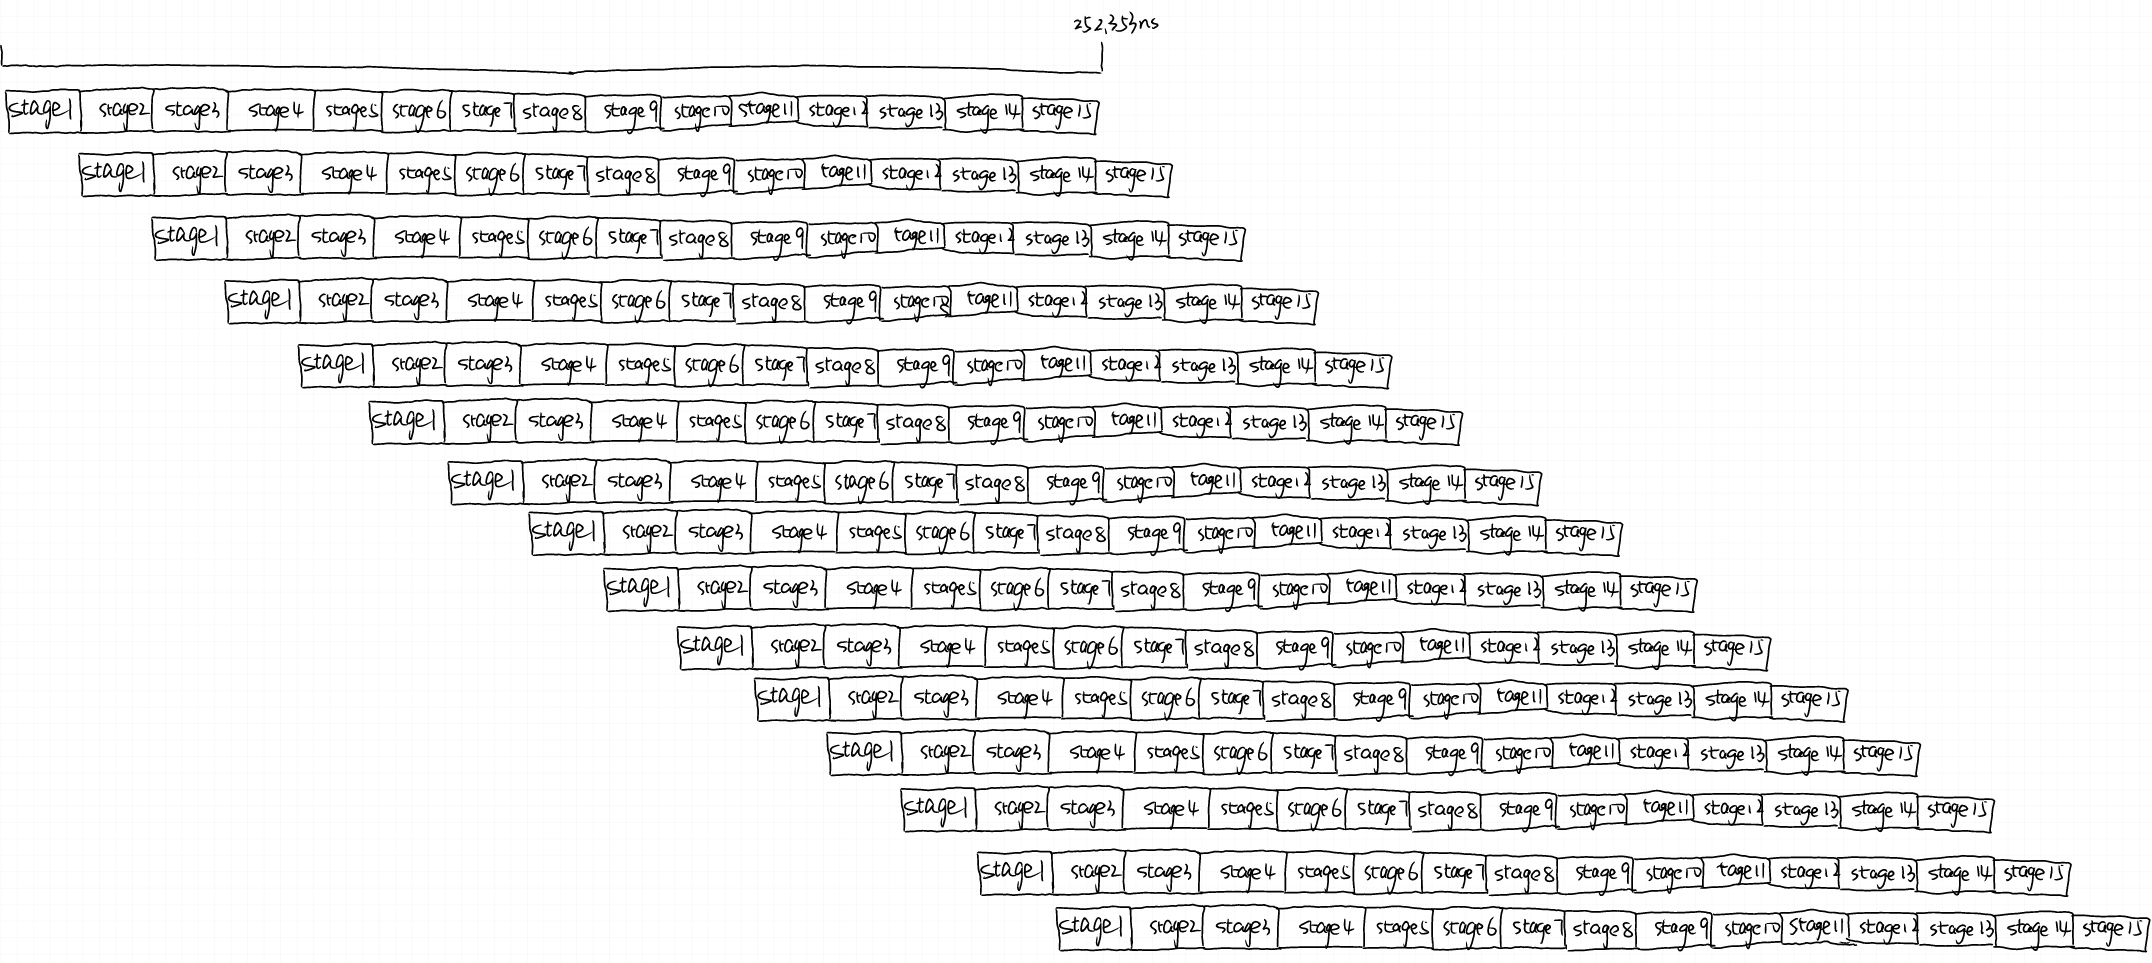 252,353ns
stage1 stage2 stage3 stage4 stage5 stage6 stage7 stage8 stage9 stage10 stage11 stage12 stage13 stage14 stage15
stage1 stage2 stage3 stage4 stage5 stage6 stage7 stage8 stage9 stage10 tage11 stage12 stage13 stage14 stage15
stage1 stage2 stage3 stage4 stage5 stage6 stage7 stage8 stage9 stage10 tage11 stage12 stage13 stage14 stage15
stage1 stage2 stage3 stage4 stage5 stage6 stage7 stage8 stage9 stage10 tage11 stage12 stage13 stage14 stage15
stage1 stage2 stage3 stage4 stage5 stage6 stage7 stage8 stage9 stage10 tage11 stage12 stage13 stage14 stage15
stage1 stage2 stage3 stage4 stage5 stage6 stage7 stage8 stage9 stage10 tage11 stage12 stage13 stage14 stage15
stage1 stage2 stage3 stage4 stage5 stage6 stage7 stage8 stage9 stage10 tage11 stage12 stage13 stage14 stage15
stage1 stage2 stage3 stage4 stage5 stage6 stage7 stage8 stage9 stage10 tage11 stage12 stage13 stage14 stage15
stage1 stage2 stage3 stage4 stage5 stage6 stage7 stage8 stage9 stage10 tage11 stage12 stage13 stage14 stage15
stage1 stage2 stage3 stage4 stage5 stage6 stage7 stage8 stage9 stage10 tage11 stage12 stage13 stage14 stage15
stage1 stage2 stage3 stage4 stage5 stage6 stage7 stage8 stage9 stage10 tage11 stage12 stage13 stage14 stage15
stage1 stage2 stage3 stage4 stage5 stage6 stage7 stage8 stage9 stage10 tage11 stage12 stage13 stage14 stage15
stage1 stage2 stage3 stage4 stage5 stage6 stage7 stage8 stage9 stage10 tage11 stage12 stage13 stage14 stage15
stage1 stage2 stage3 stage4 stage5 stage6 stage7 stage8 stage9 stage10 tage11 stage12 stage13 stage14 stage15
stage1 stage2 stage3 stage4 stage5 stage6 stage7 stage8 stage9 stage10 stage11 stage12 stage13 stage14 stage15